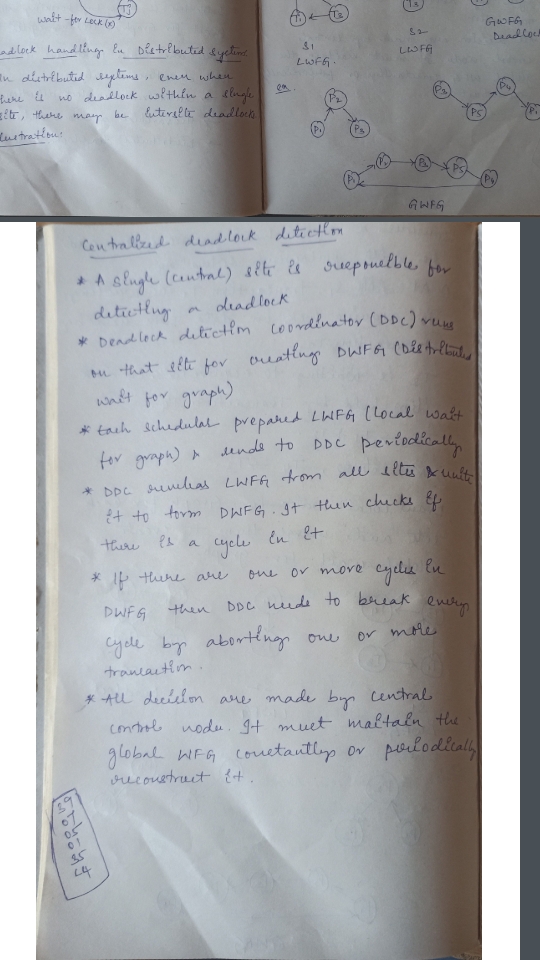 wait-for Lock(x)
T3
deadlock handling in Distributed system
In distributed systems, even when
there is no deadlock within a single
site, there may be intersite deadlock
illustration:
T1
T2
S1
LWFG.
T3
S2
LWFG
GWFG
Deadlock
ex.
P2
P1
P3
P3
P4
P5
P1
P2
P3
P5
P4
GWFG
Centralized deadlock detection
* A single (central) site is responsible for
detecting a deadlock
* Deadlock detection coordinator (DDC) runs
on that site for creating DWFG (Distributed
wait for graph)
* Each schedular prepared LWFG (local wait
for graph) & sends to DDC periodically
* DDC receives LWFG from all sites & unite
it to form DWFG. It then checks if
there is a cycle in it
* If there are one or more cycles in
DWFG then DDC needs to break every
cycle by aborting one or more
transaction.
* All decision are made by central
control node. It must maitain the
global WFG constantly or periodically
reconstruct it.